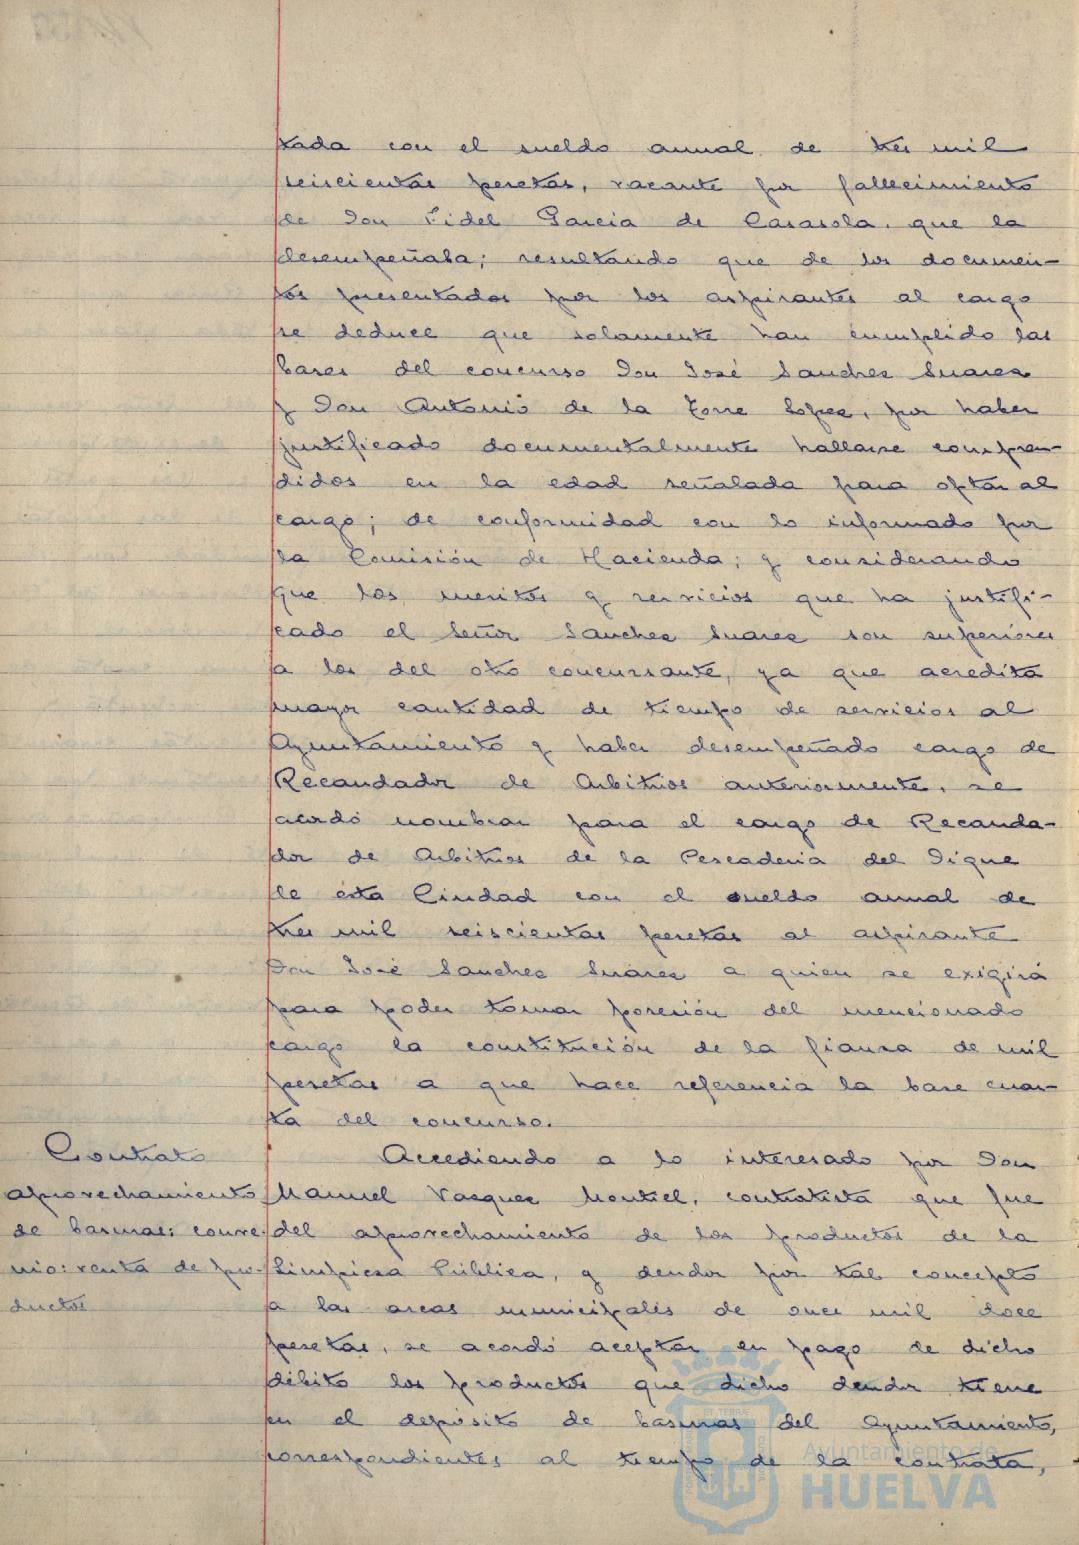 tada con el sueldo anual de tres mil
seiscientas pesetas, vacante por fallecimiento
de Don Fidel Garcia de Carasola, que la
desempeñaba; resultando que de los documen-
tos presentados por los aspirantes al cargo
se deduce que solamente han cumplido las
bases del concurso Don José Sanchez Suarez
y Don Antonio de la Torre Lopez, por haber
justificado documentalmente hallarse compren-
didos en la edad señalada para optar al
cargo; de conformidad con lo informado por
la Comisión de Hacienda; y considerando
que los meritos y servicios que ha justifi-
cado el Señor Sanchez Suarez son superiores
a los del otro concursante, ya que acredita
mayor cantidad de tiempo de servicios al
Ayuntamiento y haber desempeñado cargo de
Recaudador de Arbitrios anteriormente, se
acordó nombrar para el cargo de Recauda-
dor de Arbitrios de la Pescaderia del Dique
de esta Ciudad con el sueldo anual de
tres mil seiscientas pesetas al aspirante
Don José Sanchez Suárez a quien se exigirá
para poder tomar posesión del mencionado
cargo la constitución de la fianza de mil
pesetas a que hace referencia la base cuar-
ta del concurso.
Contrato
aprovechamiento
de basuras: conve-
nio: venta de pro-
ductos
Accediendo a lo interesado por Don
Manuel Vazquez Montiel, contratista que fue
del aprovechamiento de los productos de la
Limpieza Pública, y deudor por tal concepto
a las arcas municipales de once mil doce
pesetas, se acordó aceptar en pago de dicho
débito los productos que dicho deudor tiene
en el depósito de basuras del Ayuntamiento,
correspondientes al tiempo de la contrata,
Ayuntamiento de
HUELVA